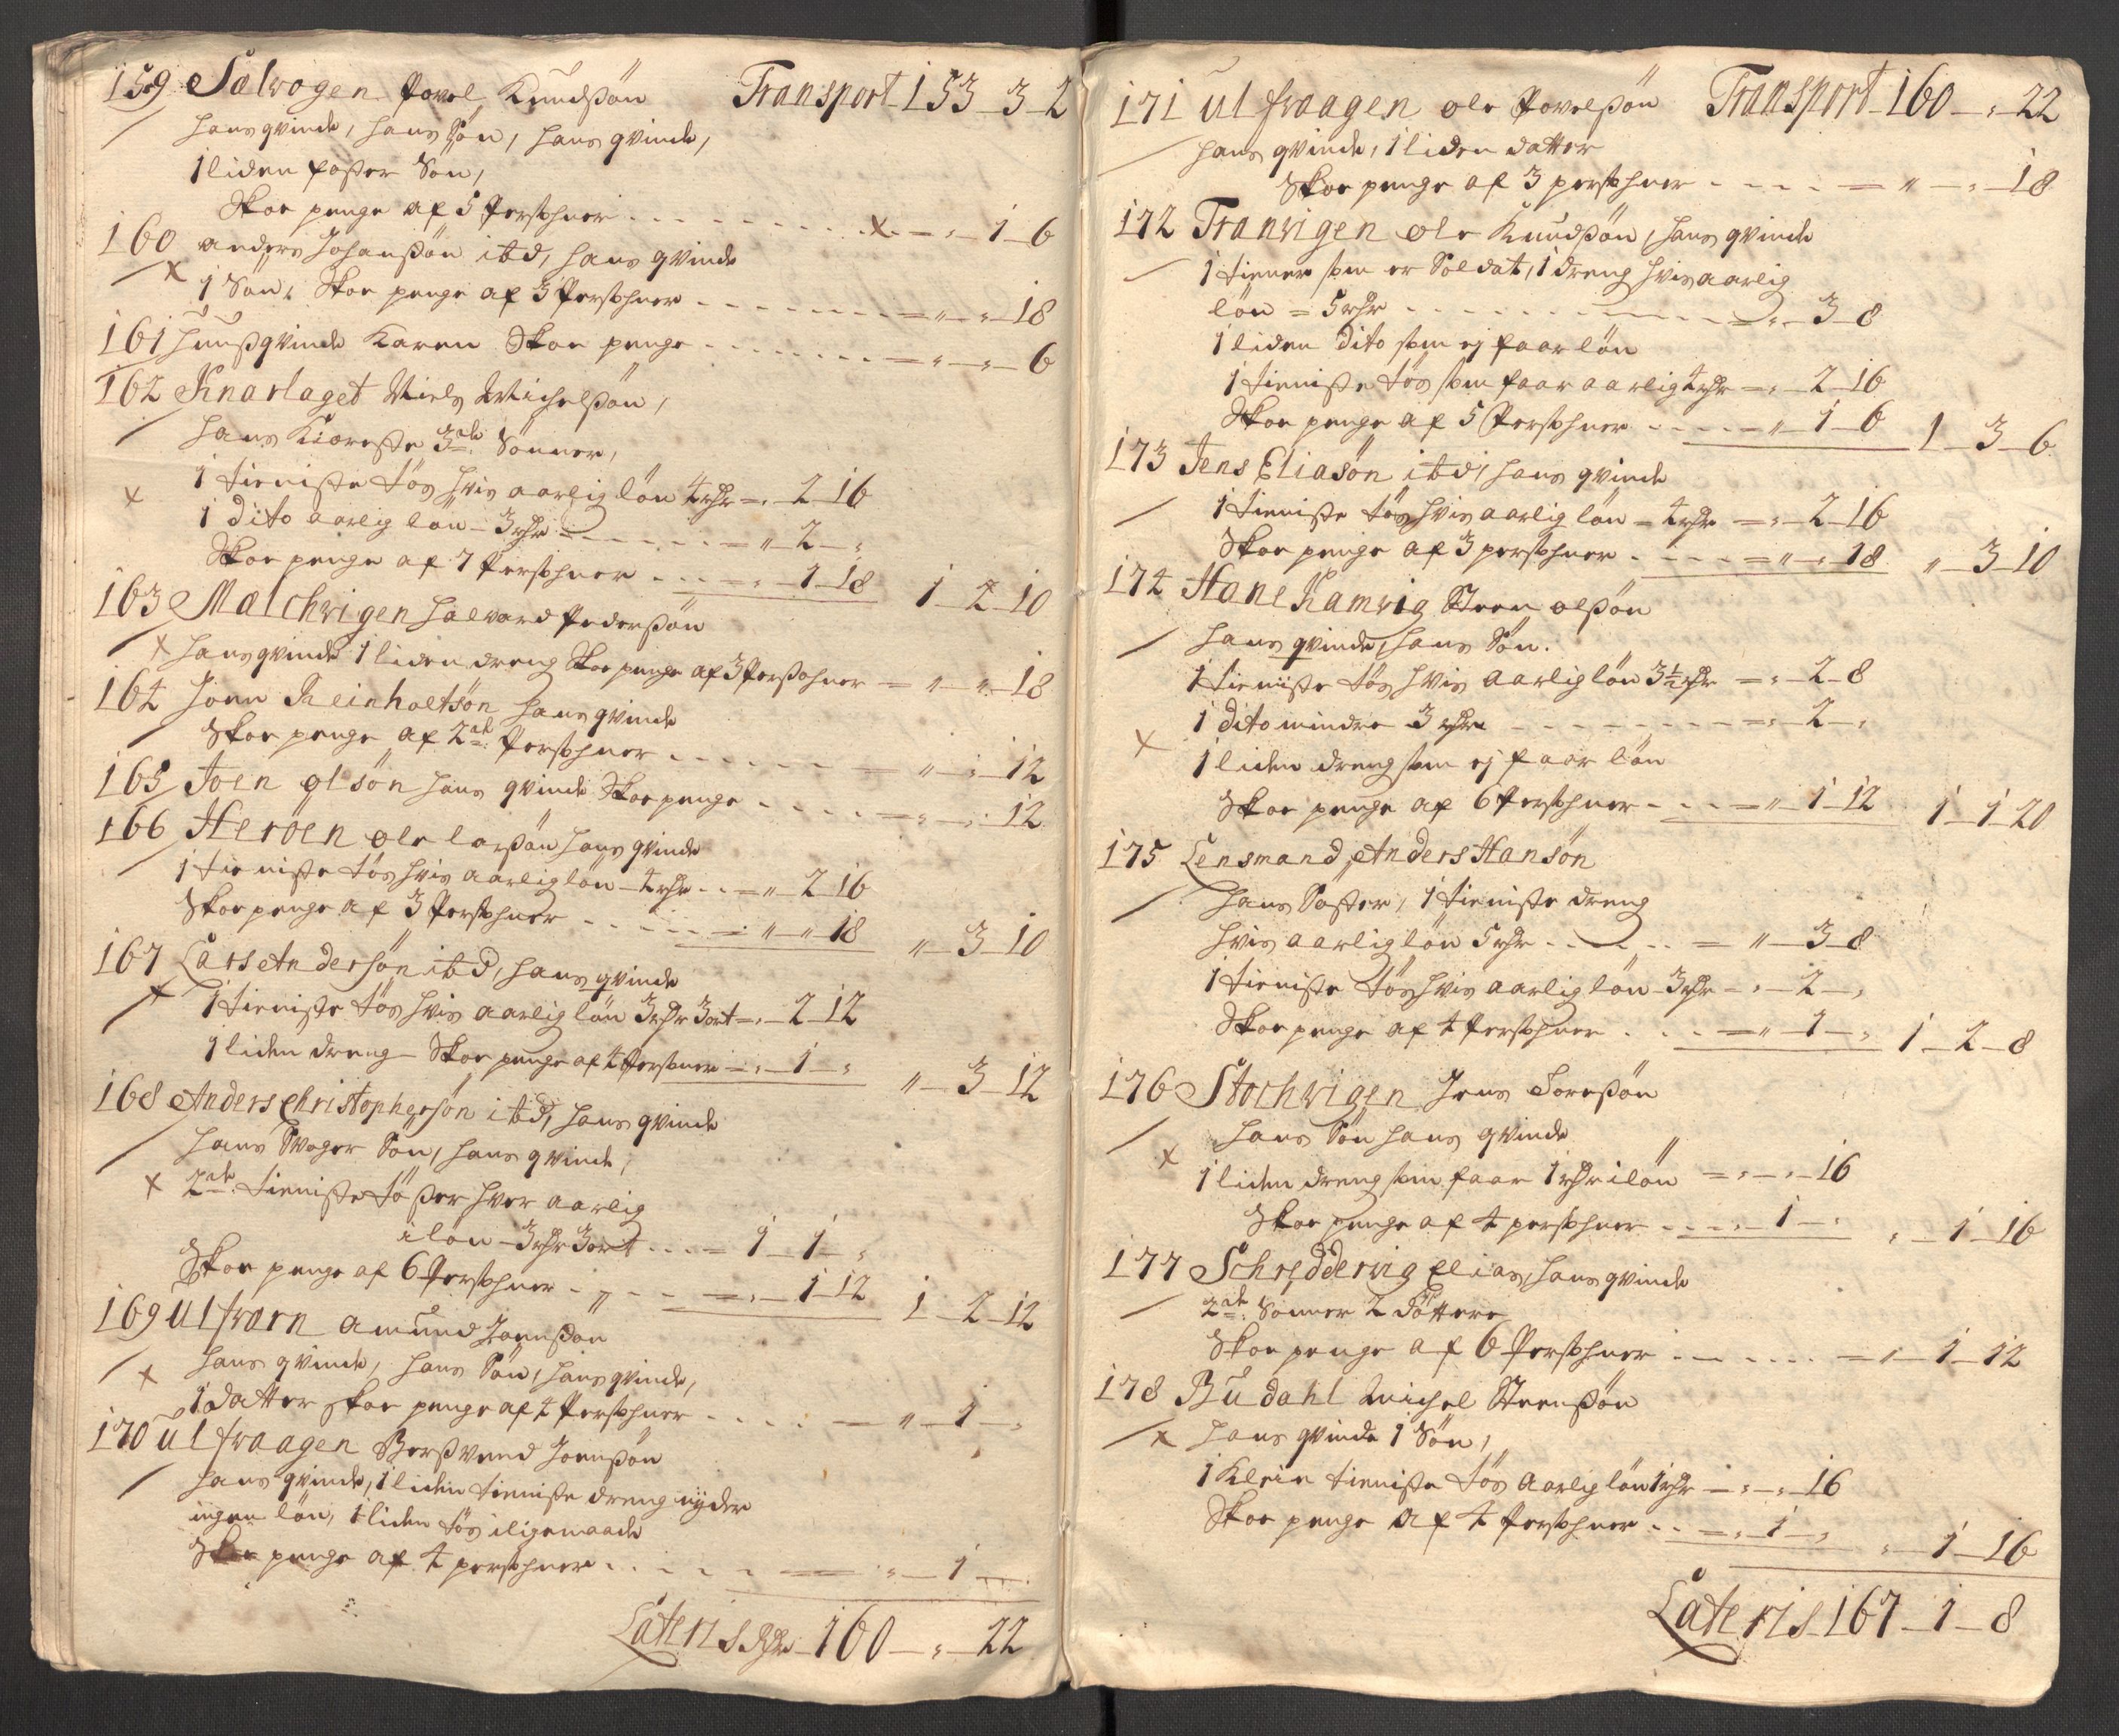 159 Salvogen Povel Knudsøn Transport 153 3 2
hans qvinde, hans Søn, hans qvinde,
1 liden foster Søn,
Skoe penge af 5 Persohner . . . . x — „ 1 6
160 anders Johansøn ibd, hans qvinde
x 1 Søn, Skoe penge af 3 Persohner - - - „ „ 18
161 huusqvinde Karen Skoe penge . . . . „ „ 6
162 Knarlaget Niels Michelsøn,
hans Kiereste 3de Sønner,
1 tieniste tøs hvis aarlig løn 4 rdr — „ 2 16
x 1 dito aarlig løn 3 rdr - - - - „ 2 „
Skoe penge af 7 Persohner . . . — „ 1 18 1 2 10
163 Malchvigen halvord Pedersøn
x hans qvinde 1 liden dreng Skoe penge af 3 Persohner — „ „ 18
164 Jonn Reinholtsøn hans qvinde
Skoe penge af 2de Persohner . . . . „ „ 12
165 Joen olsøn hans qvinde Skoe penge . . . . „ „ 12
166 Herøen ole larsøn hans qvinde
1 tieniste tøs hvis aarlig løn 4 rdr . . — „ 2 16
Skoe penge af 3 Persohner . . . . „ „ 18 „ 3 10
167 Lars Andersøn ibd, hans qvinde
x 1 tieniste tøs hvis aarlig løn 3 rdr 3 ort — „ 2 12
1 liden dreng Skoe penge af 4 Persohner — „ 1 „ „ 3 12
168 Anders Christophersøn ibd, hans qvinde
hans Svoger Søn, hans qvinde,
x 2de tieniste tøser hver aarlig
i løn 3 rdr 3 ort . . . . 1 1 „
Skoe penge af 6 Persohner - „ - - — „ 1 12 1 2 12
169 Ulfværn amund Joensøn
x hans qvinde, hans Søn, hans qvinde,
1 datter Skoe penge af 4 Persohner . . . . „ 1 „
170 Ulfvaagen Bersvend Joensøn
hans qvinde, 1 liden tieniste dreng nyder
ingen løn, 1 liden tøs iligemaade
Skoe penge af 4 persohner . . . . „ 1 „
Lateris Rdr 160 „ 22
171 Ulfvaagen ole Povelsøn Transport 160 „ 22
hans qvinde, 1 liden datter
Skoe penge af 3 persohner . . . . „ „ 18
172 Tranvigen ole Knudsøn, hans qvinde
1 tiener som er Soldat, 1 dreng hvis aarlig
løn = 5 rdr . . . . „ 3 8
1 liden dito som ej faar løn
1 tieniste tøs som faar aarlig 4 rdr — „ 2 16
Skoe penge af 5 Persohner . . . . „ 1 6 1 3 6
173 Jens Eliasøn ibd, hans qvinde
1 tieniste tøs hvis aarlig løn = 4 rdr — „ 2 16
Skoe penge af 3 persohner . . . . „ „ 18 „ 3 10
174 Hanekamvig Steen olsøn
hans qvinde, hans Søn.
1 tieniste tøs hvis aarlig løn 3 1/2 rdr — „ 2 8
x 1 dito mindre 3 rdr - - - - „ 2 „
1 liden dreng som ej faar løn
Skoe penge af 6 Persohner - - - „ 1 12 1 1 20
175 Lensmand Anders Hansøn
hans Søster, 1 tieniste dreng
hvis aarlig løn 5 rdr . . . . = „ 3 8
1 tieniste tøs hvis aarlig løn 3 rdr — „ 2 „
Skoe penge af 4 Persohner . . . „ 1 „ 1 2 8
176 Stochvigen Jens Soresøn
x hans Søn hans qvinde
1 liden dreng som faar 1 rdr i løn — „ „ 16
Skoe penge af 4 persohner . . . . 1 „ „ 1 16
177 Schreddervig Elias, hans qvinde
2de Sønner 2 døttere
Skoe penge af 6 Persohner . . . . „ 1 12
178 Budahl Michel Steensøn
x hans qvinde 1 Søn,
1 Klein tieniste tøs aarlig løn 1 rdr — „ „ 16
Skoe penge af 4 Persohner . . . „ 1 „ „ 1 16
Lateris 167 1 8